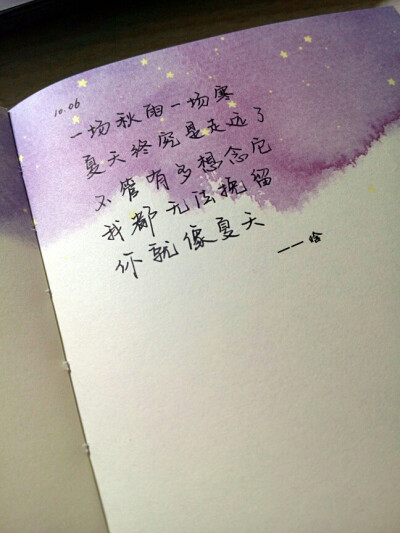 10.06
一场秋雨一场寒
夏天终究是走远了
不管有多想念它
我都无法挽留
你就像夏天
——晗